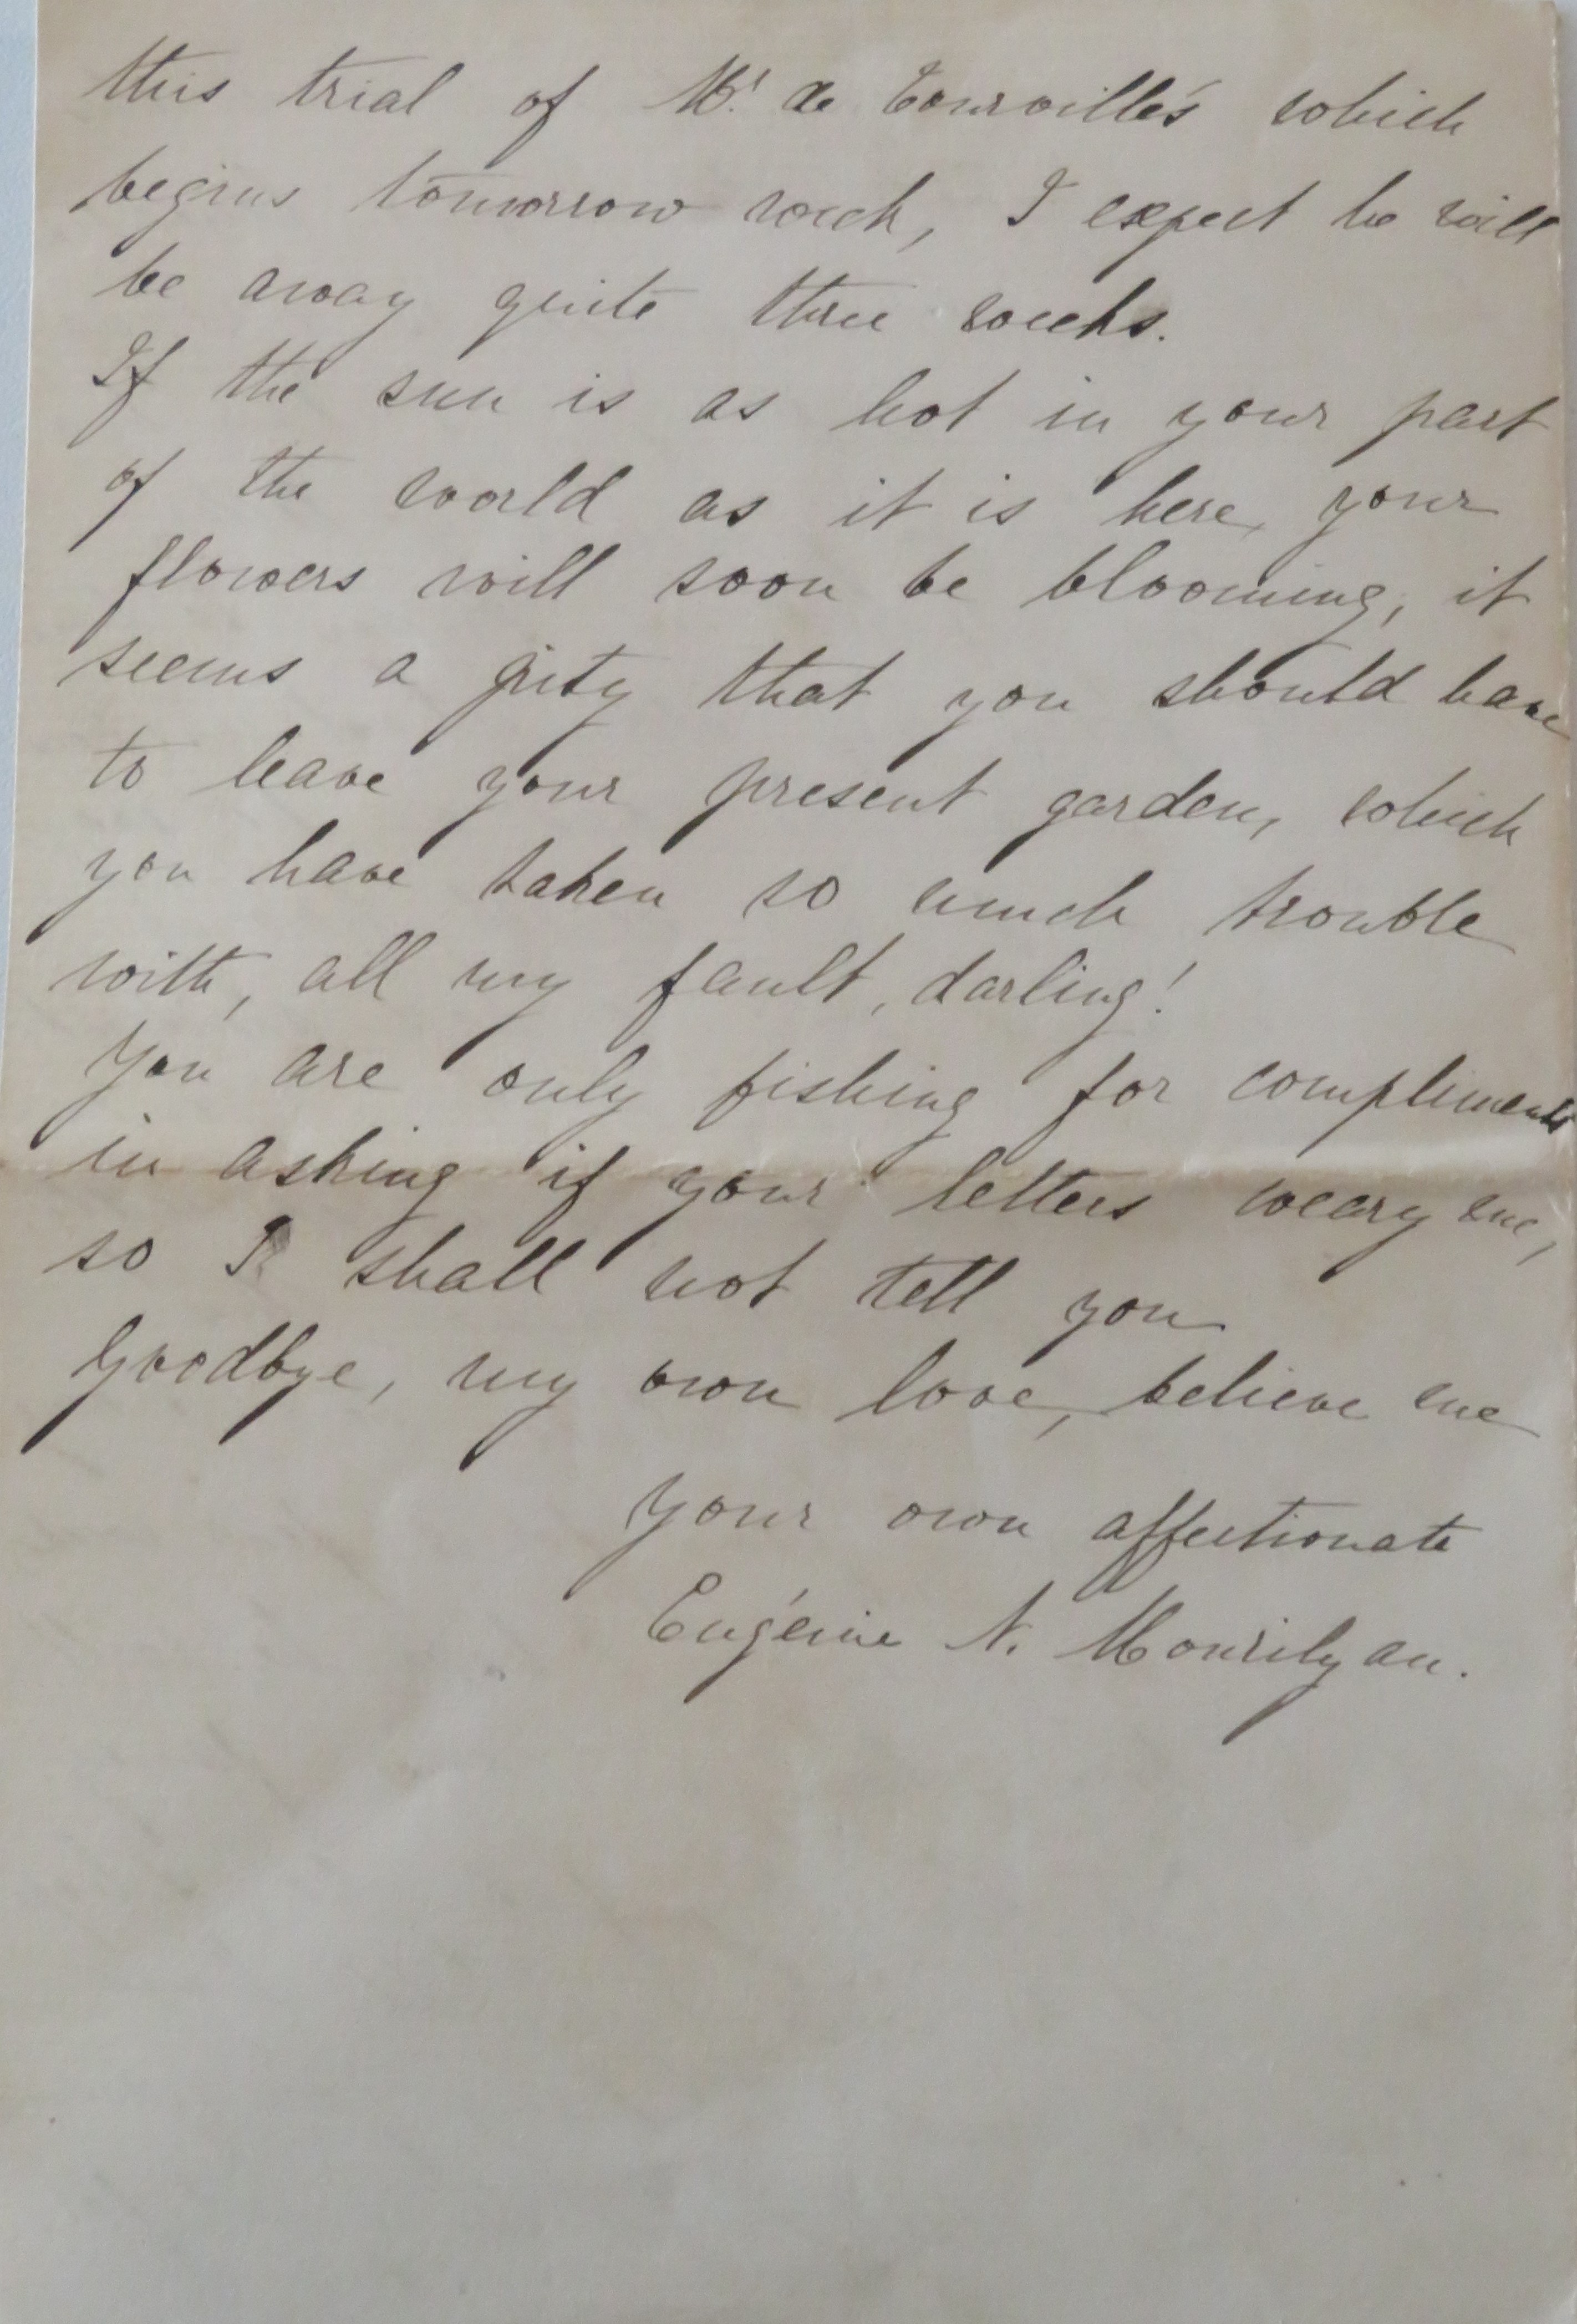 this trial of Mr. de Tourville's which
begins tomorrow week, I expect he will
be away quite three weeks.
If the sun is as hot in your part
of the world as it is here, your
flowers will soon be blooming, it
seems a pity that you should have
to leave your present garden, which
you have taken so much trouble
with, all my fault, darling!
You are only fishing for compliments
in asking if your letters weary me,
so I shall not tell you
Goodbye, my own love, believe me
your own affectionate
Eugénie N. Mourilyan.